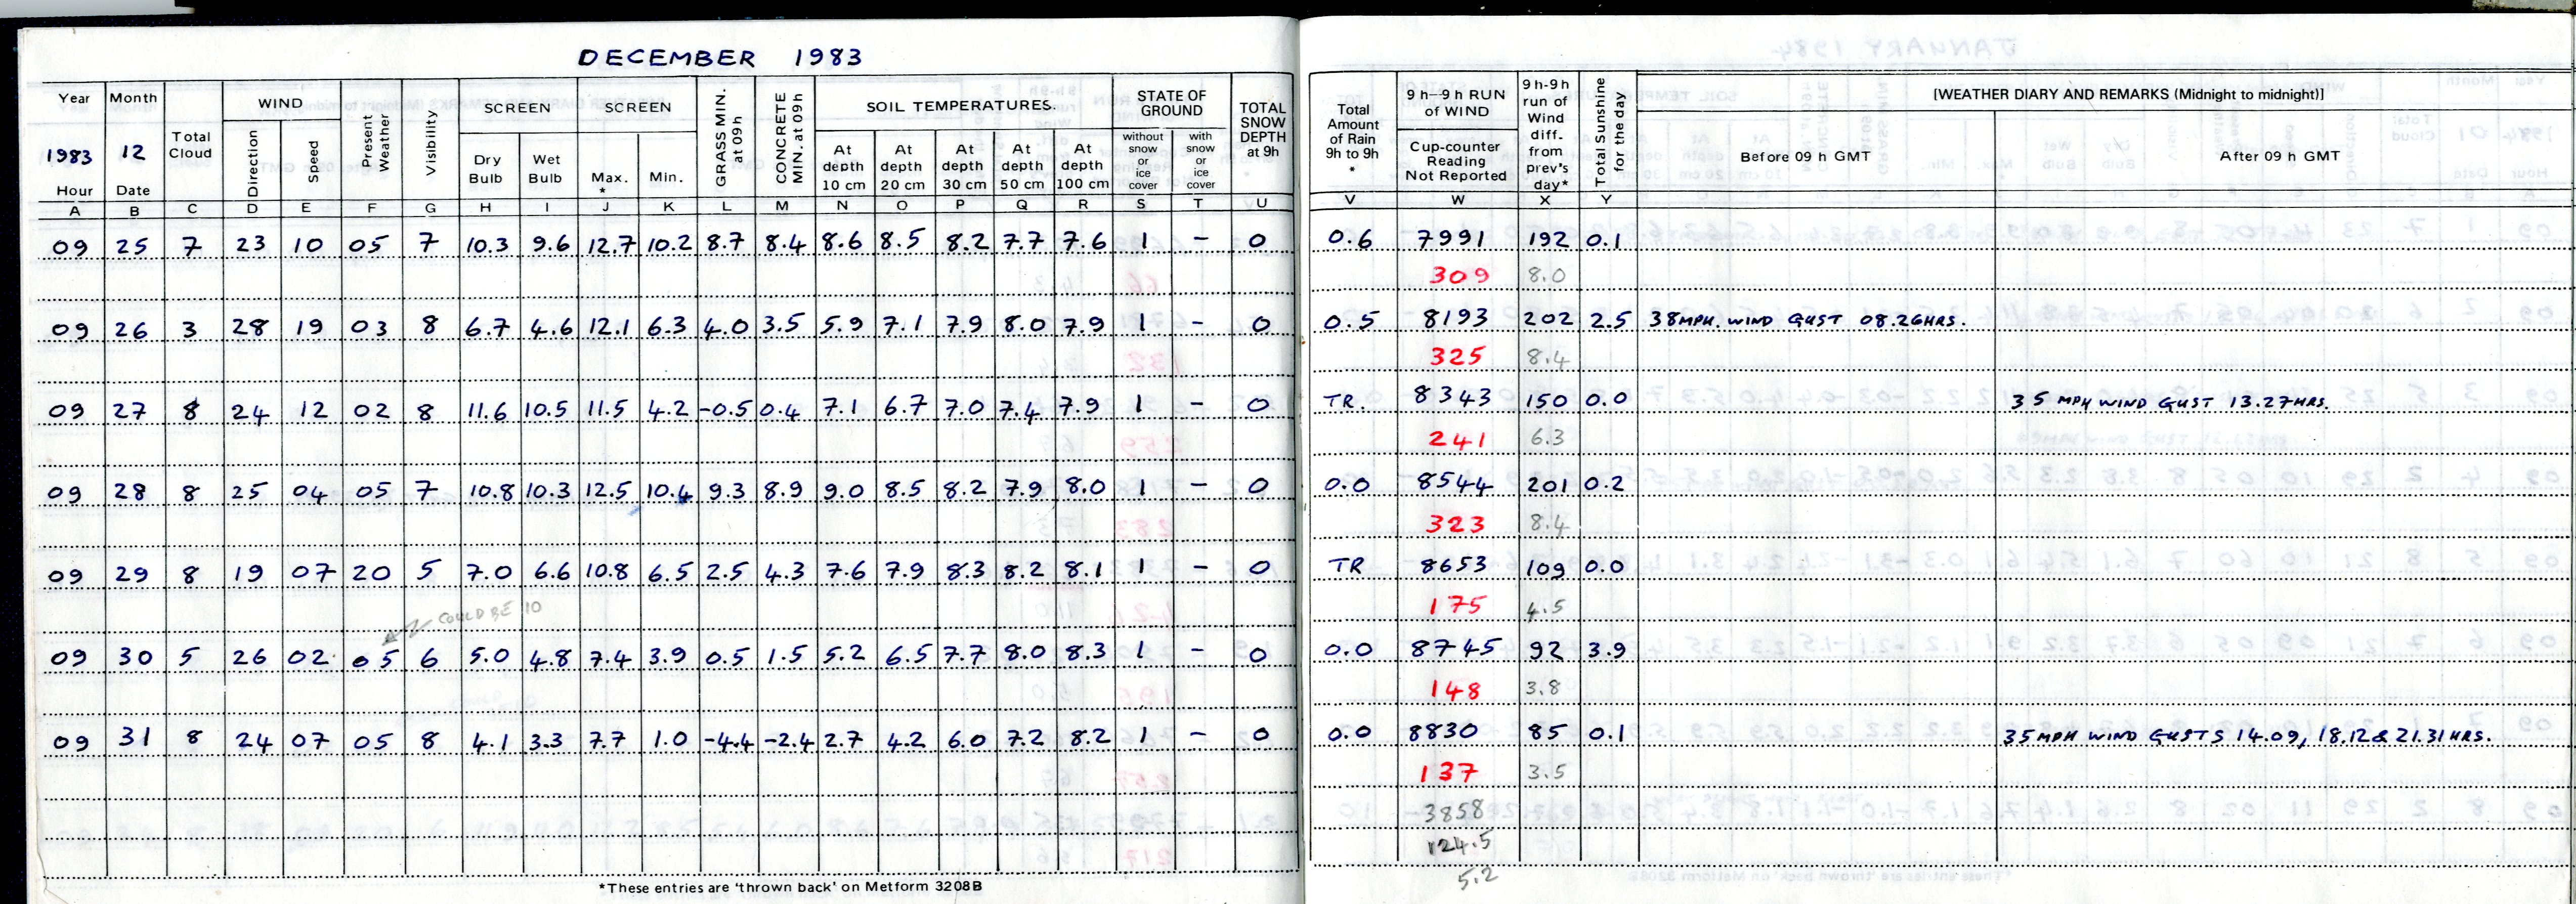 DECEMBER 1983
Year Month Total Cloud WIND Direction Speed Present Weather Visibility SCREEN Dry Bulb Wet Bulb SCREEN Max. * Min. GRASS MIN. at 09h CONCRETE MIN. at 09h SOIL TEMPERATURES. At depth 10 cm At depth 20 cm At depth 30 cm At depth 50 cm At depth 100 cm STATE OF GROUND without snow or ice cover with snow or ice cover TOTAL SNOW DEPTH at 9h
1983 12
Hour Date
A B C D E F G H I J K L M N O P Q R S T U
09 25 7 23 10 05 7 10.3 9.6 12.7 10.2 8.7 8.4 8.6 8.5 8.2 7.7 7.6 1 – 0
09 26 3 28 19 03 8 6.7 4.6 12.1 6.3 4.0 3.5 5.9 7.1 7.9 8.0 7.9 1 – 0
09 27 8 24 12 02 8 11.6 10.5 11.5 4.2 -0.5 0.4 7.1 6.7 7.0 7.4 7.9 1 – 0
09 28 8 25 04 05 7 10.8 10.3 12.5 10.4 9.3 8.9 9.0 8.5 8.2 7.9 8.0 1 – 0
09 29 8 19 07 20 5 7.0 6.6 10.8 6.5 2.5 4.3 7.6 7.9 8.3 8.2 8.1 1 – 0
COULD BE 10
09 30 5 26 02 05 6 5.0 4.8 7.4 3.9 0.5 1.5 5.2 6.5 7.7 8.0 8.3 1 – 0
09 31 8 24 07 05 8 4.1 3.3 7.7 1.0 -4.4 -2.4 2.7 4.2 6.0 7.2 8.2 1 – 0
*These entries are 'thrown back' on Metform 3208B
Total Amount of Rain 9h to 9h * 9 h–9 h RUN of WIND Cup-counter Reading Not Reported 9 h-9h run of Wind diff. from prev's day* Total Sunshine for the day [WEATHER DIARY AND REMARKS (Midnight to midnight)]
Before 09 h GMT After 09 h GMT
V W X Y
0.6 7991 192 0.1
309 8.0
0.5 8193 202 2.5 38MPH. WIND GUST 08.26HRS.
325 8.4
TR. 8343 150 0.0 35 MPH WIND GUST 13.27HRS.
241 6.3
0.0 8544 201 0.2
323 8.4
TR 8653 109 0.0
175 4.5
0.0 8745 92 3.9
148 3.8
0.0 8830 85 0.1 35MPH WIND GUSTS 14.09, 18.12 & 21.31HRS.
137 3.5
3858
124.5
5.2